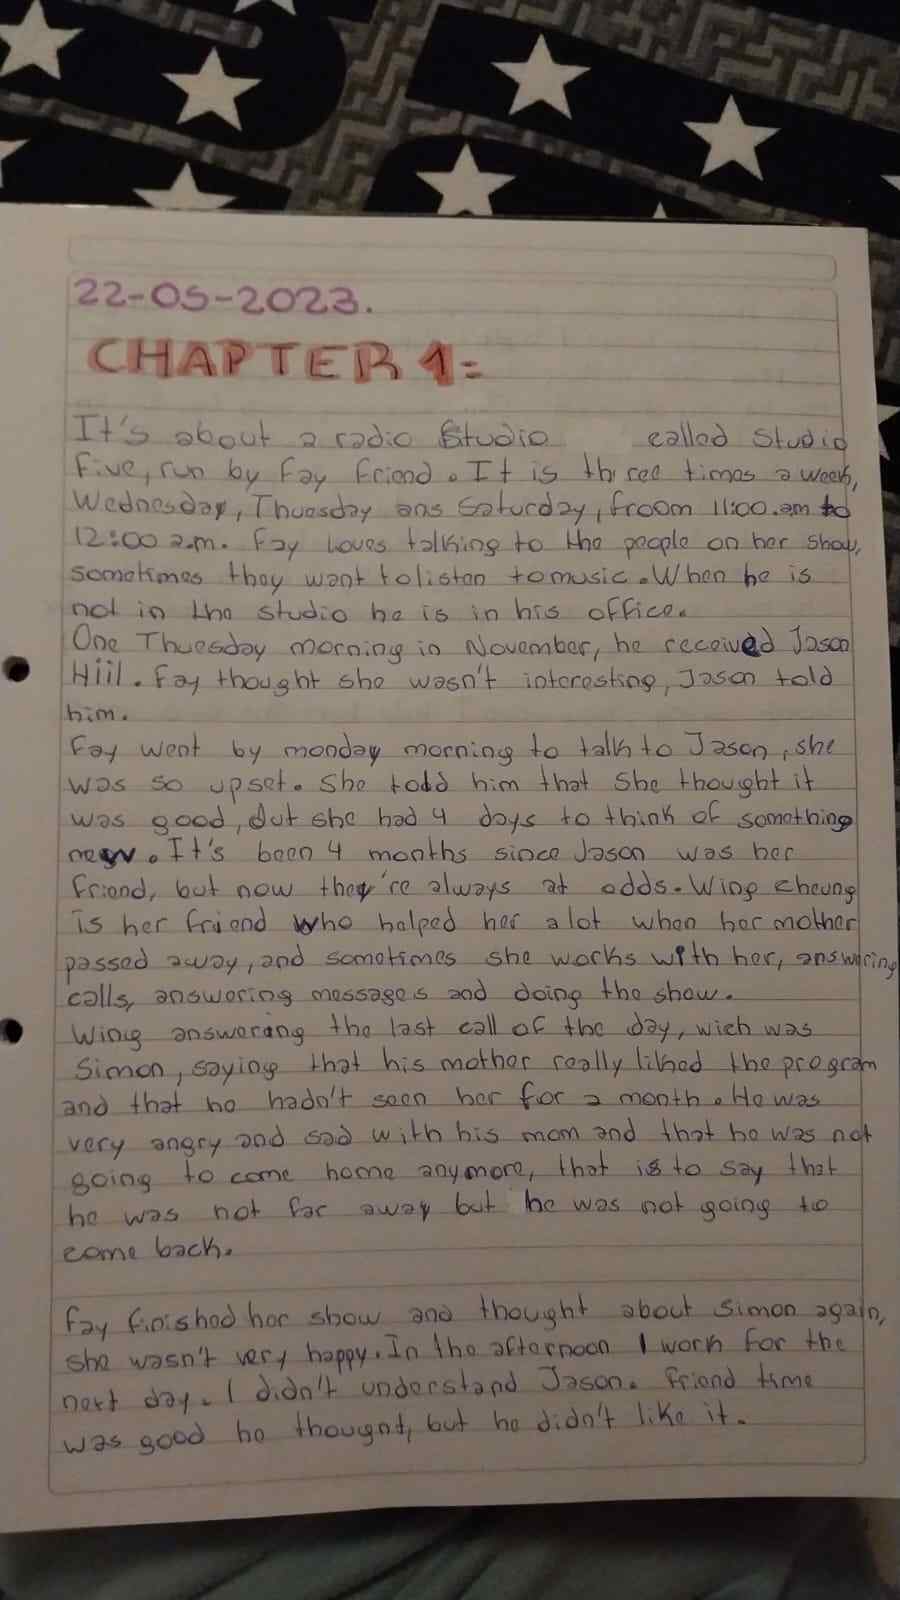 22-05-2023.
CHAPTER 1=
It's about a radio Studio called Studio
Five, run by Fay Friend. It is three times a week,
Wednesday, Thuesday ans Saturday, froom 11:00.am to
12:00 a.m. Fay Loves talking to the people on her show,
sometimes they want to listen to music. When he is
not in the studio he is in his office.
One Thuesday morning in November, he received Jason
Hiil. Fay thought she wasn't interesting, Jason told
him.
Fay went by monday morning to talk to Jason, she
was so upset. She todd him that she thought it
was good, but she had 4 days to think of something
new. It's been 4 months since Jason was her
friend, but now they're always at odds. Wing cheung
is her friend who helped her a lot when her mother
passed away, and sometimes she works with her, answering
calls, answering messages and doing the show.
Wing answering the last call of the day, wich was
Simon, saying that his mother really liked the program
and that he hadn't seen her for a month. He was
very angry and sad with his mom and that he was not
going to come home anymore, that is to say that
he was not far away but he was not going to
come back.
Fay finished her show and thought about Simon again,
she wasn't very happy. In the afternoon I work for the
next day. I didn't understand Jason. Friend time
was good he thought, but he didn't like it.